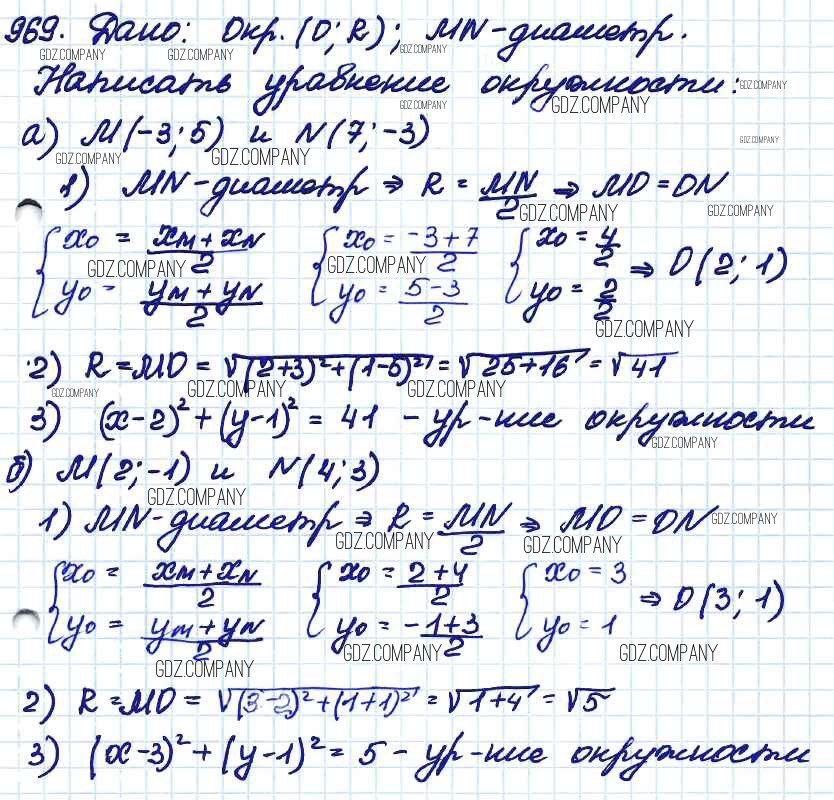 969. Дано: Окр. (O; R); MN-диаметр.
Написать уравнение окружности:
а) M(-3; 5) и N(7; -3)
1) MN-диаметр ⇒ R = MN/2 ⇒ MO = ON
{ x₀ = (xM + xN)/2 { x₀ = (-3+7)/2 { x₀ = 4/2 ⇒ O(2; 1)
y₀ = (yM + yN)/2 y₀ = (5-3)/2 y₀ = 2/2
2) R = MO = √((2+3)²+(1-5)²) = √(25+16) = √41
3) (x-2)² + (y-1)² = 41 - ур-ние окружности
б) M(2; -1) и N(4; 3)
1) MN-диаметр ⇒ R = MN/2 ⇒ MO = ON
{ x₀ = (xM + xN)/2 { x₀ = (2+4)/2 { x₀ = 3 ⇒ O(3; 1)
y₀ = (yM + yN)/2 y₀ = (-1+3)/2 y₀ = 1
2) R = MO = √((3-2)²+(1+1)²) = √(1+4) = √5
3) (x-3)² + (y-1)² = 5 - ур-ние окружности
GDZ.COMPANY